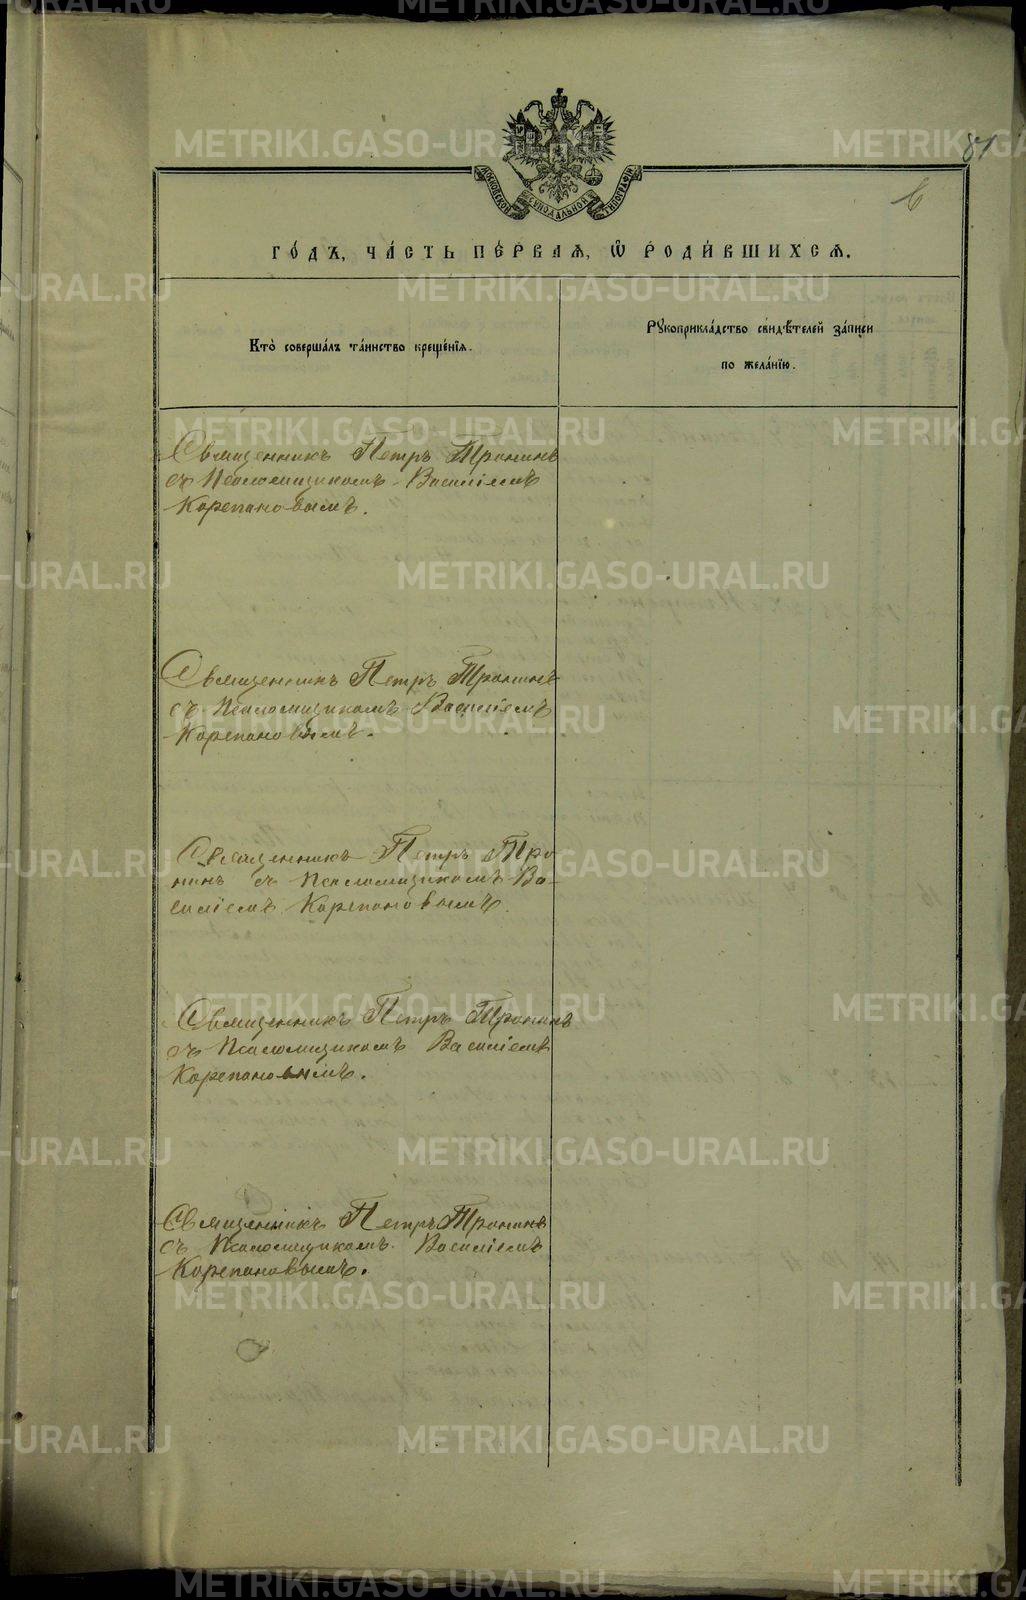 81
6
МОСКОВСКОЙ СѴНОДАЛЬНОЙ ТИПОГРАФІИ
ГО́ДЪ, ЧА́СТЬ ПЕ́РВАѦ, Ѽ РОДИ́ВШИХСѦ.
Кто̀ соверша́лъ та́инство креще́нїѧ.
Рꙋкоприкла́дство свидѣ́телей за́писи
по жела́нїю.
Священникъ Петръ Тронинъ
съ Псаломщикомъ Василіемъ
Корепановымъ.
Священникъ Петръ Тронинъ
съ Псаломщикомъ Василіемъ
Корепановымъ.
Священникъ Петръ Тро
нинъ съ Псаломщикомъ Ва-
силіемъ Корепановымъ.
Священникъ Петръ Тронинъ
съ Псаломщикомъ Василіемъ
Корепановымъ.
Священникъ Петръ Тронинъ
съ Псаломщикомъ Василіемъ
Корепановымъ.
METRIKI.GASO-URAL.RU